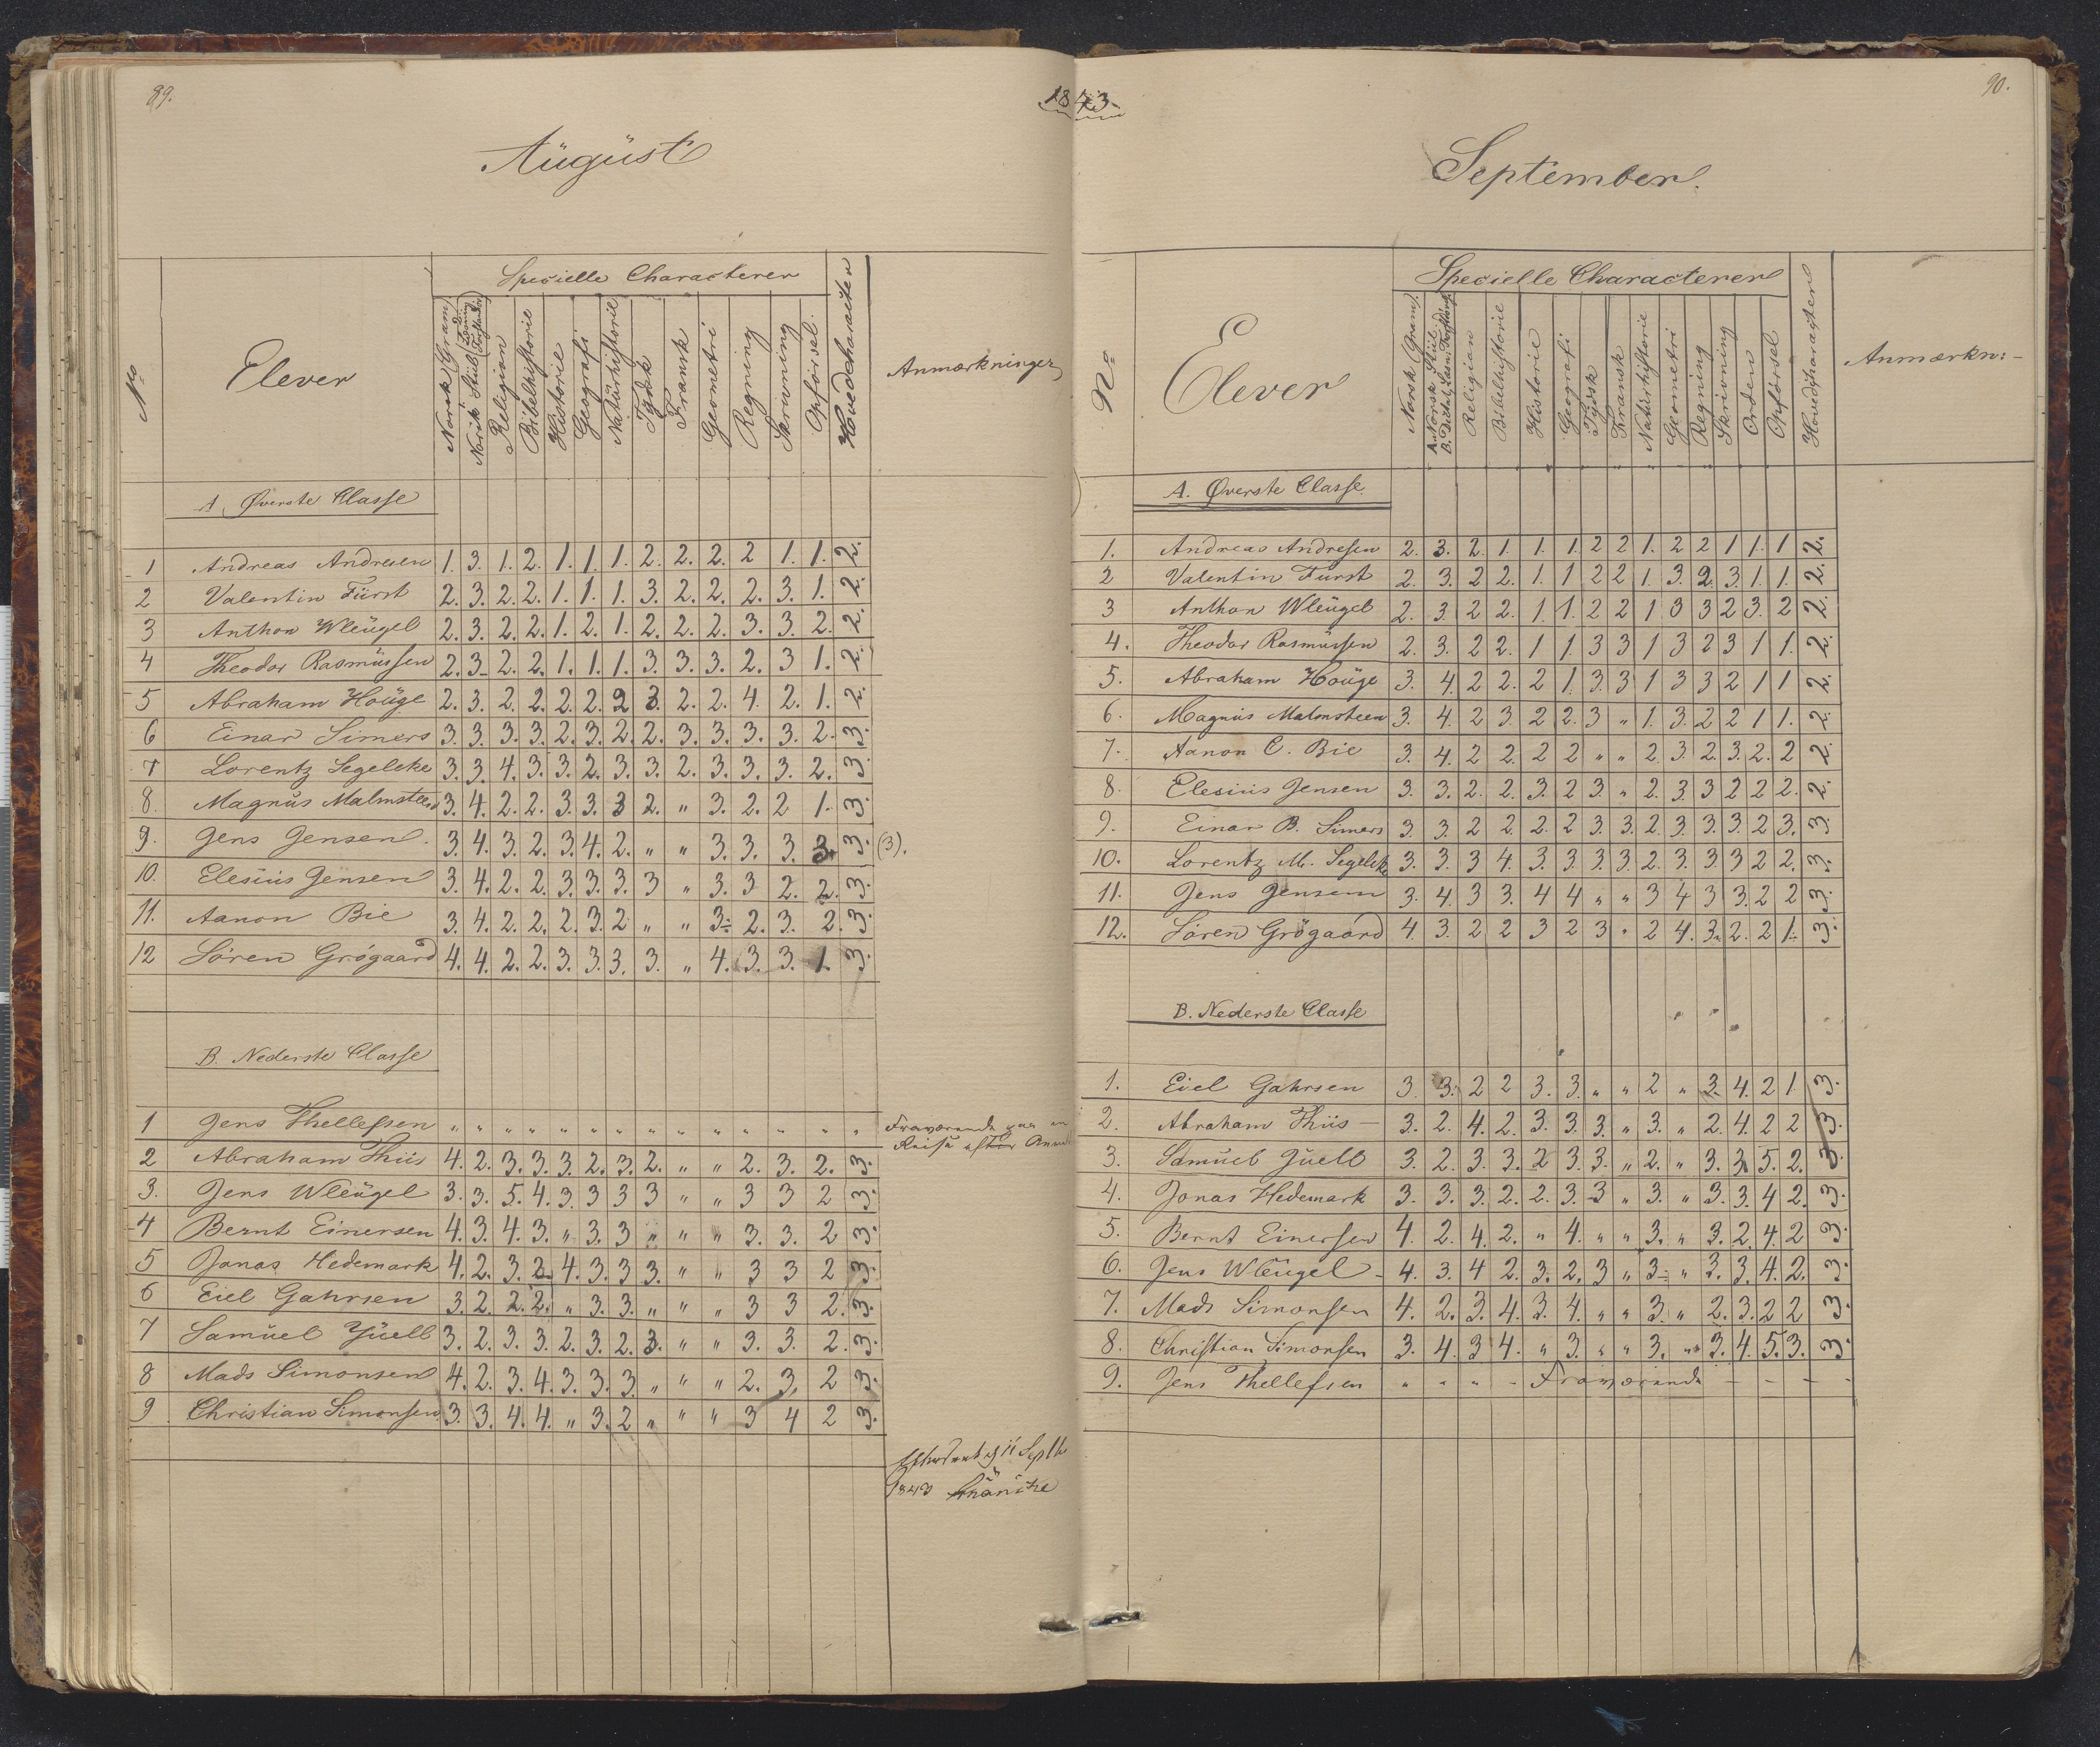 89.
1843
August
Specielle Characterer
No
Elever
Norsk (Gram)
Norsk Stiil
Religion
Bibelhistorie
Historie
Geografi
Naturhistorie
Tydsk
Fransk
Geometri
Regning
Skrivning
Opførsel.
Hovedcharacter
Anmærkninger
A. Øverste Classe
1 Andreas Andresen 1. 3. 1. 2. 1. 1. 1. 2. 2. 2. 2 1. 1. 2.
2 Valentin Fürst 2. 3. 2. 2. 1. 1. 1. 3. 2. 2. 2. 3. 1. 2.
3 Anthon Wleügel 2. 3. 2. 2. 1. 2. 1. 2. 2. 2. 3. 3. 2. 2.
4 Theodor Rasmüssen 2. 3. 2. 2. 1. 1. 1. 3. 3. 3. 2. 3 1. 2.
5 Abraham Hoüge 2. 3. 2. 2. 2. 2. 2 3. 2. 2. 4. 2. 1. 2.
6 Einar Simers 3. 3. 3. 3. 2. 3. 2. 2. 3. 3. 3. 3. 2. 3.
7 Lorentz Segelcke 3. 3. 4. 3. 3. 2. 3. 3. 2. 3. 3. 3. 2. 3.
8. Magnus Malmsteen 3. 4. 2. 2. 3. 3. 3 2. " 3. 2. 2 1. 3.
9. Jens Jensen. 3. 4. 3. 2. 3. 4. 2. " " 3. 3. 3. 3. 3. (3).
10. Elesius Jensen 3. 4. 2. 2. 3. 3. 3. 3 " 3. 3 2. 2. 3.
11. Aanon Bie 3. 4. 2. 2. 2. 3. 2 " " 3. 2. 3. 2. 3.
12 Sören Grögaard 4. 4. 2. 2. 3. 3. 3. 3. " 4. 3. 3. 1. 3.
B. Nederste Classe
1 Jens Thellefsen " " " " " " " " " " " " " " Fraværende paa en
Reise
2 Abraham Thiis 4. 2. 3. 3. 3. 2. 3. 2. " " 2. 3. 2. 3.
3. Jens Wleügel 3. 3. 5. 4. 3. 3 3 3 " " 3 3 2 3.
4 Bernt Einersen 4. 3. 4. 3. " 3. 3 " " " 3. 3. 2 3.
5 Jonas Hedemark 4. 2. 3. 2. 4. 3. 3 3. " " 3 3 2 3.
6 Eiel Gahrsen 3. 2. 2. 2. " 3. 3. " " " 3 3 2. 3.
7 Samüel Jüell 3. 2. 3. 3. 2. 3. 2. 3. " " 3. 3. 2. 3.
8 Mads Simonsen 4. 2. 3. 4. 3. 3. 3. " " " 2. 3. 2 3.
9 Christian Simonsen 3. 3. 4. 4. " 3. 2 " " " 3 4 2 3.
11 Septb
1843
90.
September.
Specielle Characterer
No
Elever
Norsk (Gram).
A. Norsk Stiil.
Religion
Bibelhistorie
Historie
Geografi
Tydsk
Fransk
Naturhistorie
Geometri
Regning
Skrivning
Orden
Opførsel
Hovedcharacter
Anmærkn:
A. Øverste Classe.
1. Andreas Andresen 2. 3. 2. 1. 1. 1. 2 2 1. 2 2 1 1. 1 2.
2 Valentin Fürst 2. 3. 2 2. 1. 1 2 2 1. 3. 2. 3. 1. 1. 2.
3 Anthon Wleügel 2. 3. 2 2. 1 1. 2 2 1 3 3 2 3. 2 2.
4. Theodor Rasmüssen 2. 3. 2 2. 1 1. 3 3 1 3 2 3 1 1. 2.
5. Abraham Hoüge 3. 4. 2 2. 2 1. 3. 3 1 3 3 2 1 1 2.
6. Magnüs Malmsteen 3. 4. 2 3. 2 2. 3 " 1. 3. 2 2 1 1. 2.
7. Aanon C. Bie 3. 4. 2 2. 2 2 " " 2. 3. 2. 3. 2. 2 2.
8. Elesiüs Jensen 3. 3. 2. 2. 3. 2 3. " 2. 3. 3 2 2 2. 2.
9. Einar B. Simers 3. 3. 2 2. 2. 2 3. 3. 2. 3. 3. 3. 2 3. 3.
10. Lorentz M. Segelcke 3. 3. 3 4. 3. 3. 3. 3. 2. 3. 3. 3 2 2. 3.
11. Jens Jensen 3. 4. 3 3. 4 4 " " 3 4 3 3. 2 2 3.
12. Sören Grögaard 4. 3. 2 2 3 2 3 " 2 4. 3. 2. 2 1. 3.
B. Nederste Classe
1. Eiel Gahrsen 3. 3. 2 2 3. 3. " " 2 " 3. 4. 2 1 3.
2. Abraham Thiis 3. 2. 4. 2. 3. 3. 3. " 3. " 2. 4. 2 2 3.
3. Samüel Jüell 3. 2. 3. 3. 2 3. 3. " 2. " 3. 3. 5. 2. 3.
4. Jonas Hedemark 3. 3. 3. 2. 2. 3. 3 " 3. " 3. 3. 4 2. 3.
5. Bernt Einersen 4. 2. 4. 2. " 4. " " 3. " 3. 2. 4. 2 3.
6. Jens Wleügel 4. 3. 4 2. 3. 2. 3 " 3. " 3. 3. 4. 2. 3.
7. Mads Simonsen 4. 2. 3. 4. 3. 4. " " 3. " 2. 3. 2 2 3.
8. Christian Simonsen 3. 4. 3 4. " 3. " " 3. " 3. 4. 5. 3. 3.
9. Jens Thellefsen " " " - Fraværende - - - -